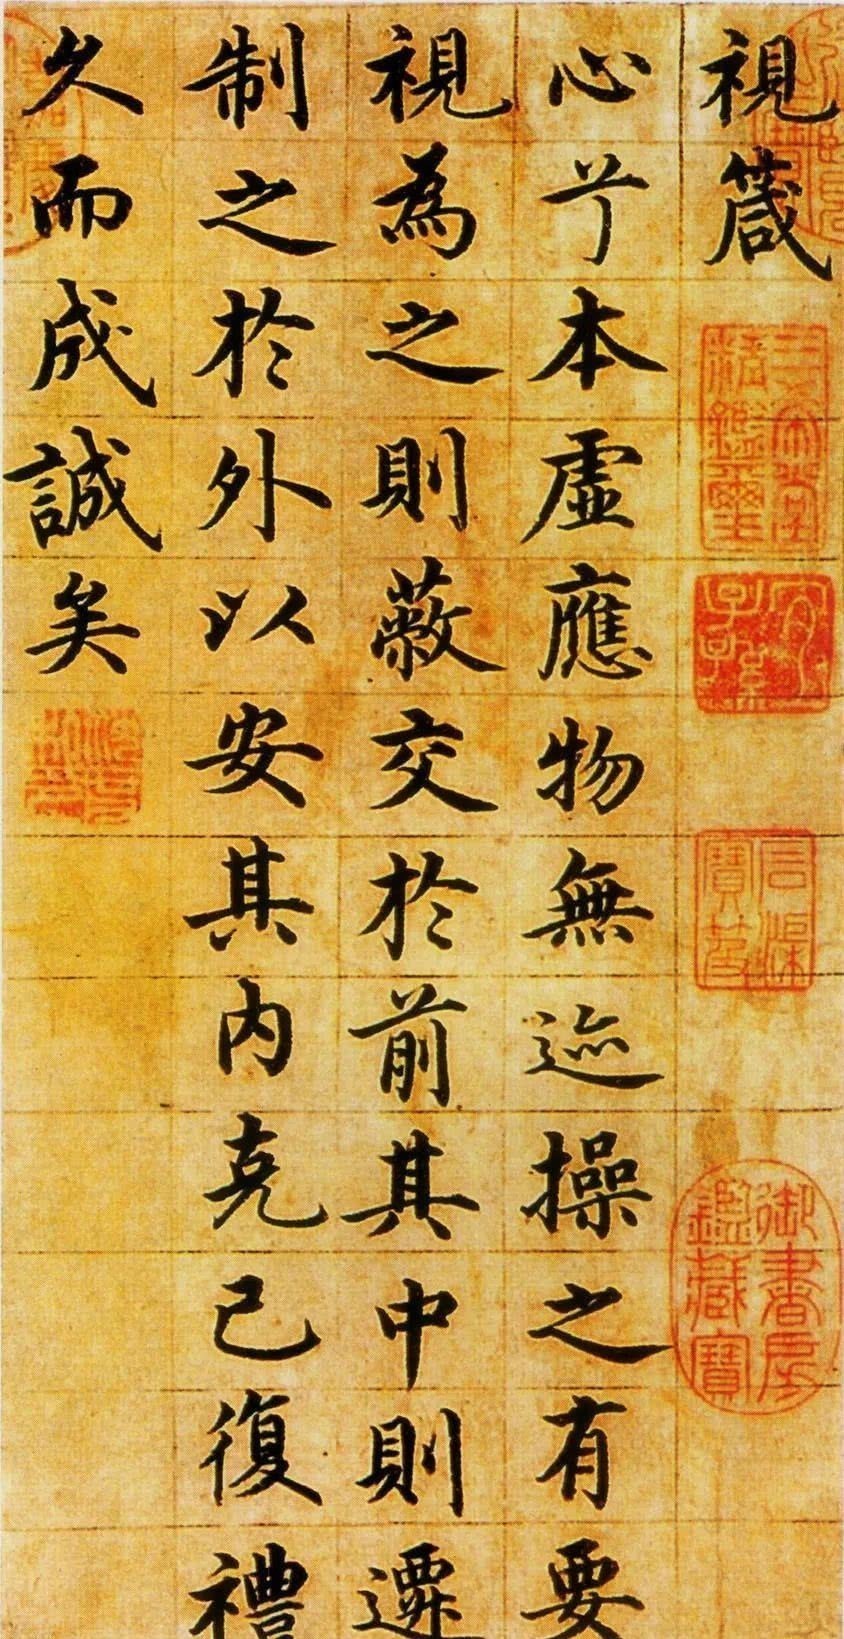 視箴
心兮本虛應物無迹操之有要
視為之則蔽交於前其中則遷
制之於外以安其內克己復禮
久而成誠矣
三希堂精鑑璽
宜子孫
石渠寶笈
御書房鑑藏寶